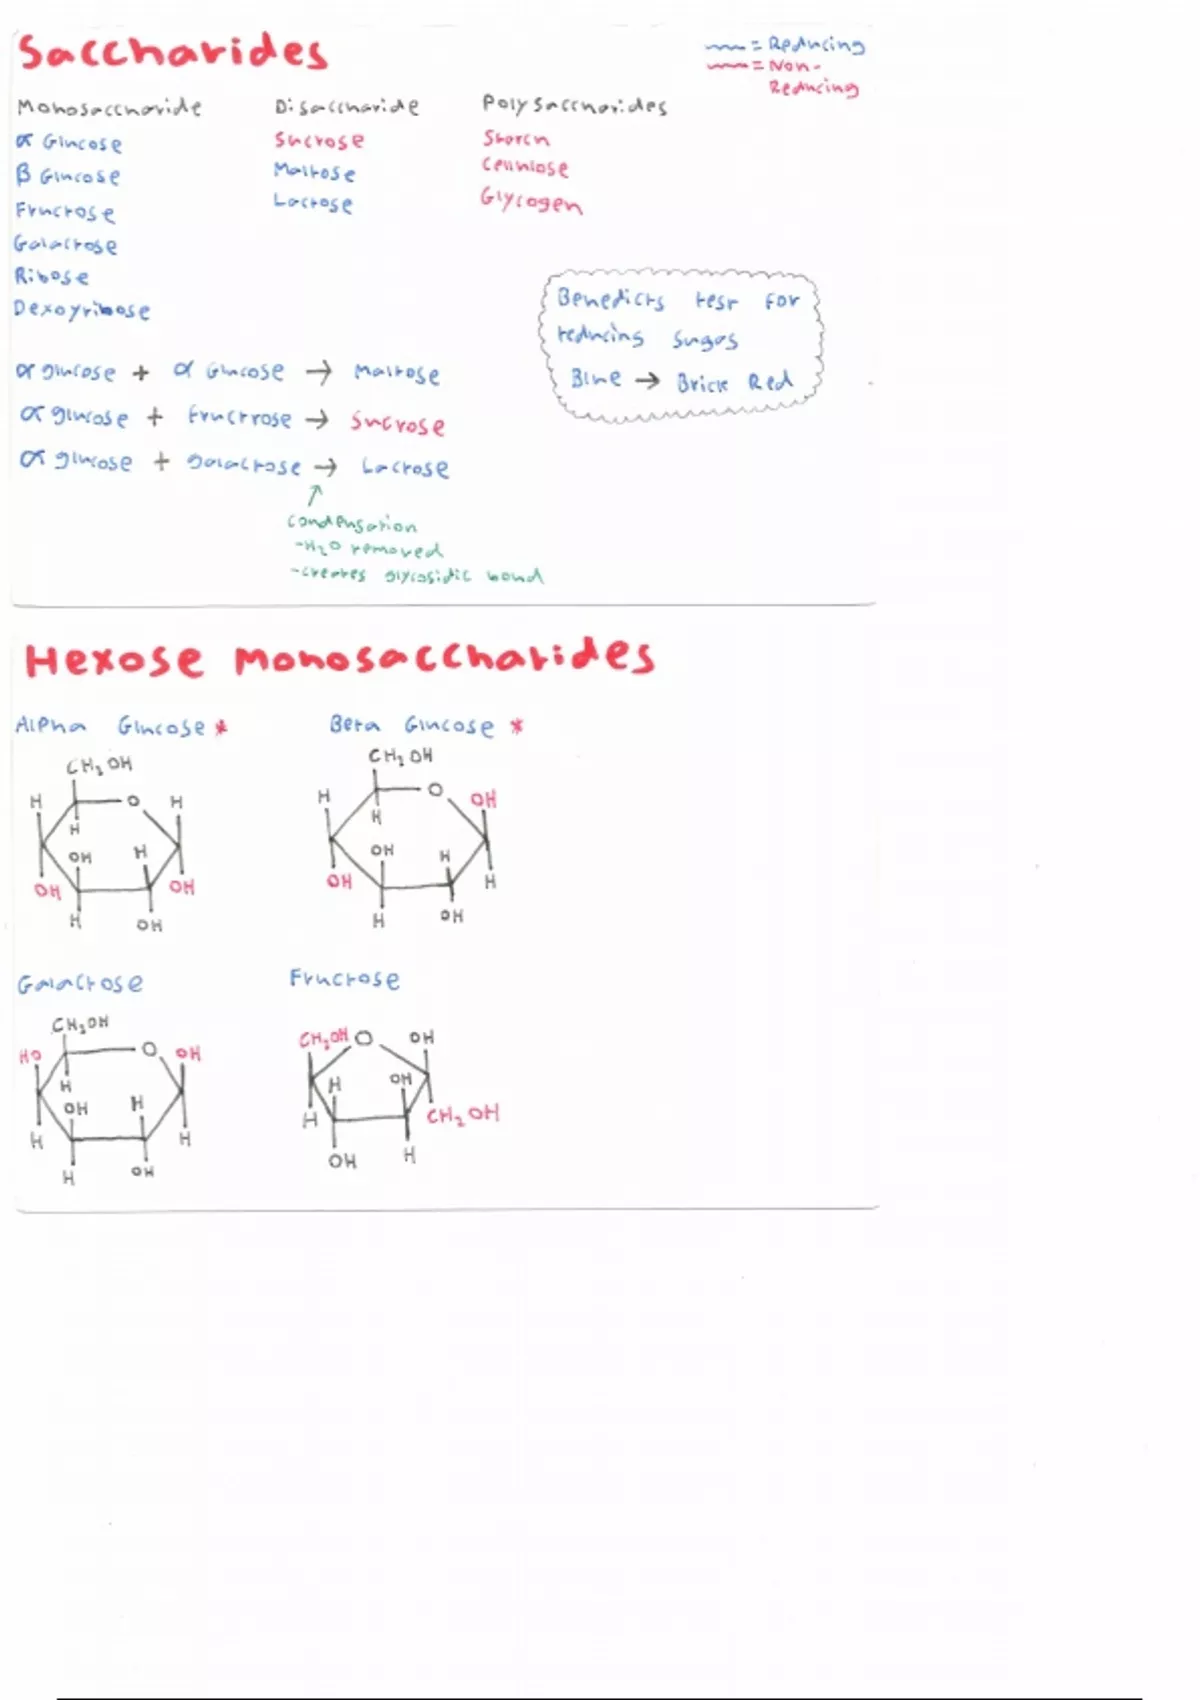 Saccharides
~~~ = Reducing
~~~ = Non-
Reducing
Monosaccharide Disaccharide Polysaccharides
α Glucose Sucrose Starch
β Glucose Maltose Cellulose
Fructose Lactose Glycogen
Galactose
Ribose
Dexoyribose
Benedicts test for
reducing sugas
Blue → Brick Red
α glucose + α Glucose → Maltose
α glucose + Fructrose → Sucrose
α glucose + galactose → Lactose
↑
Condensation
-H₂O removed
-creates glycosidic bond
Hexose monosaccharides
Alpha Glucose * Beta Glucose *
CH₂OH CH₂OH
H O H H O OH
H H
OH H OH H
OH OH OH H
H OH H OH
Galactose Fructose
CH₂OH CH₂OH O OH
HO O OH
H H OH
OH H H CH₂OH
H H OH H
H OH